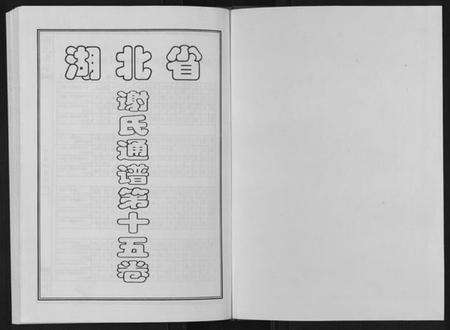 湖北省
谢氏通谱第十五卷